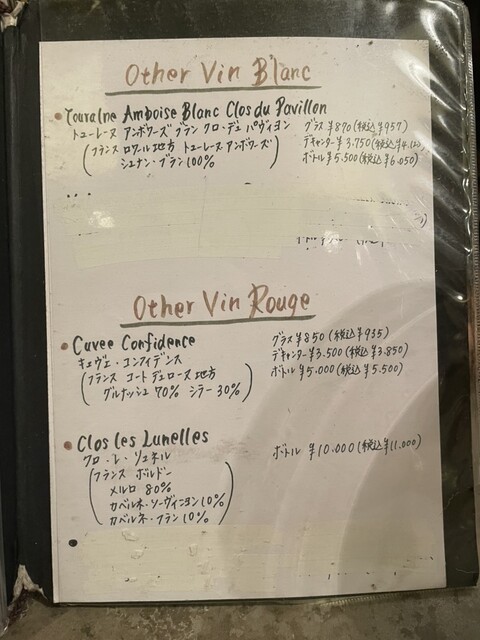 Other Vin Blanc
Touraine Amboise Blanc Clos du Pavillon
トゥーレーヌ アンボワーズ ブラン クロ・デュ パヴィヨン
グラス ¥870(税込 ¥957)
(フランス ロワール地方 トゥーレーヌ アンボワーズ)
デキャンター ¥3.750(税込 ¥4.125)
シュナン・ブラン 100%
ボトル ¥5.500(税込 ¥6.050)
Other Vin Rouge
Cuvee Confidence
グラス ¥850(税込 ¥935)
キュヴェ・コンフィデンス
デキャンター ¥3.500(税込 ¥3.850)
(フランス コート デュ ローヌ 地方
ボトル ¥5.000(税込 ¥5.500)
グルナッシュ 70% シラー 30%)
Clos les Lunelles
ボトル ¥10.000(税込 ¥11.000)
クロ・レ・リュネル
(フランス ボルドー
メルロ 80%
カベルネ・ソーヴィニヨン 10%
カベルネ・フラン 10%)